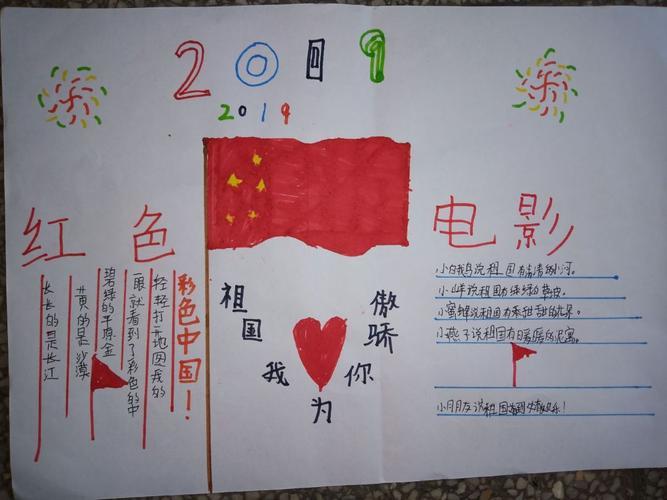 2019
2019
红色
电影
彩色中国！
轻轻打开地图我的
一眼就看到了彩色的中
碧绿的平原金
黄的是沙漠
长长的是长江
祖国
我
为
你
傲骄
小白鹅说祖国有清清的小河。
小羊说祖国有绿绿的草皮。
小蜜蜂说祖国有香甜甜的花果。
小燕子说祖国有暖暖的泥窝。
说祖国